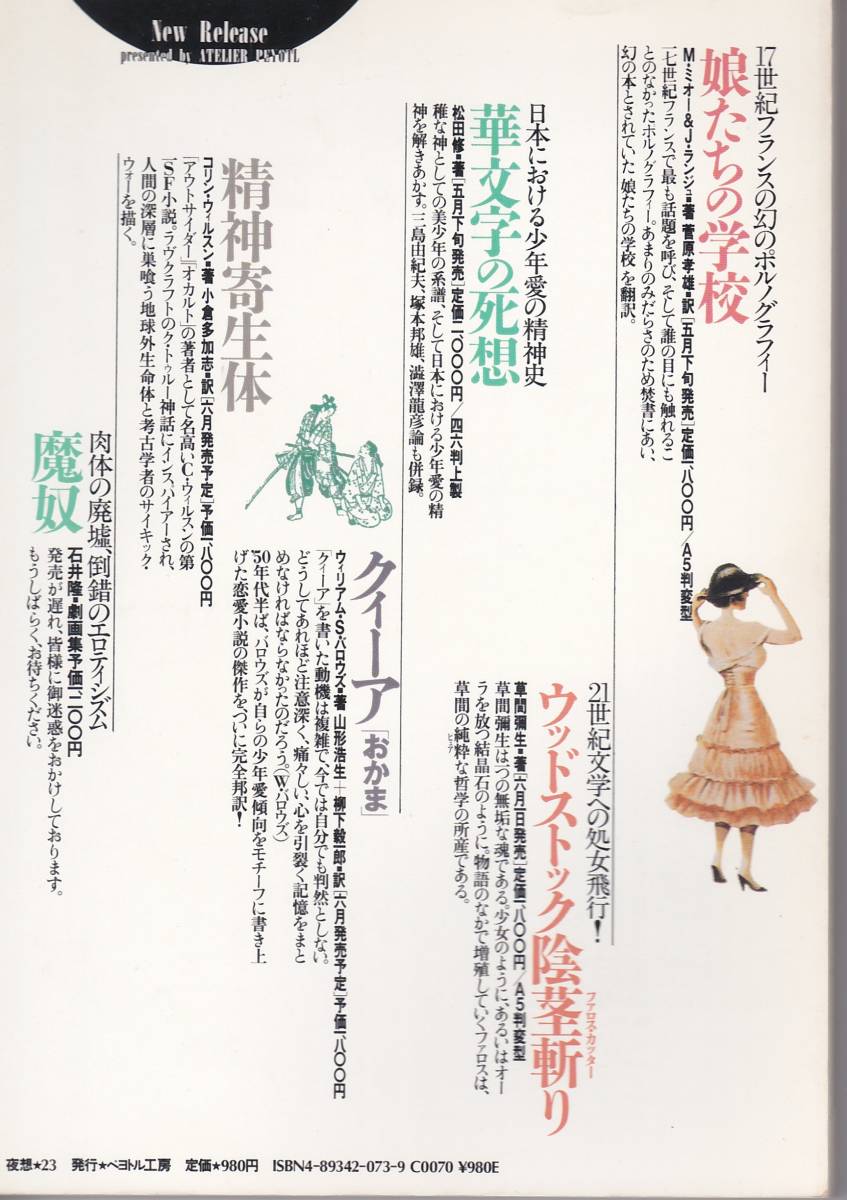 New Release
presented by ATELIER PEYOTL
17世紀フランスの幻のポルノグラフィー
娘たちの学校
M・ミオー&J・ランジュ■著 菅原孝雄■訳[五月下旬発売]定価一、八〇〇円/A5判変型
一七世紀フランスで最も話題を呼び、そして誰の目にも触れるこ
とのなかったポルノグラフィー。あまりのみだらさのため焚書にあい、
幻の本とされていた「娘たちの学校」を翻訳。
21世紀文学への処女飛行!
ウッドストック陰茎斬り
ファロス・カッター
草間彌生■著[六月一日発売]定価一、八〇〇円/A5判変型
草間彌生は一つの無垢な魂である。少女のように、あるいはオー
ラを放つ結晶石のように。物語のなかで増殖していくファロスは、
草間の純粋な哲学の所産である。
ピュア
日本における少年愛の精神史
華文字の死想
松田修■著[五月下旬発売]定価二、〇〇〇円/四六判上製
稚な神としての美少年の系譜、そして日本における少年愛の精
神を解きあかす。三島由紀夫、塚本邦雄、澁澤龍彦論も併録。
クィーア「おかま」
ウィリアム・S・バロウズ■著 山形浩生+柳下毅一郎■訳[六月発売予定]予価一、八〇〇円
「クィーア」を書いた動機は複雑で、今では自分でも判然としない。
どうしてあれほど注意深く、痛々しい、心を引裂く記憶をまと
めなければならなかったのだろう。(W・バロウズ)
'50年代半ば、バロウズが自らの少年愛傾向をモチーフに書き上
げた恋愛小説の傑作を、ついに完全邦訳!
精神寄生体
コリン・ウィルスン■著 小倉多加志■訳[六月発売予定]予価一、八〇〇円
「アウトサイダー」『オカルト』の著者として名高いC・ウィルスンの第
一SF小説。ラヴクラフトのク・トゥルー神話にインスパイアーされ、
人間の深層に巣喰う地球外生命体と考古学者のサイキック・
ウォーを描く。
肉体の廃墟、倒錯のエロティシズム
魔奴
石井隆■劇画集予価一、二〇〇円
発売が遅れ、皆様に御迷惑をおかけしております。
もうしばらく、お待ちください。
夜想★23 発行★ペヨトル工房 定価★980円 ISBN4-89342-073-9 C0070 ¥980E